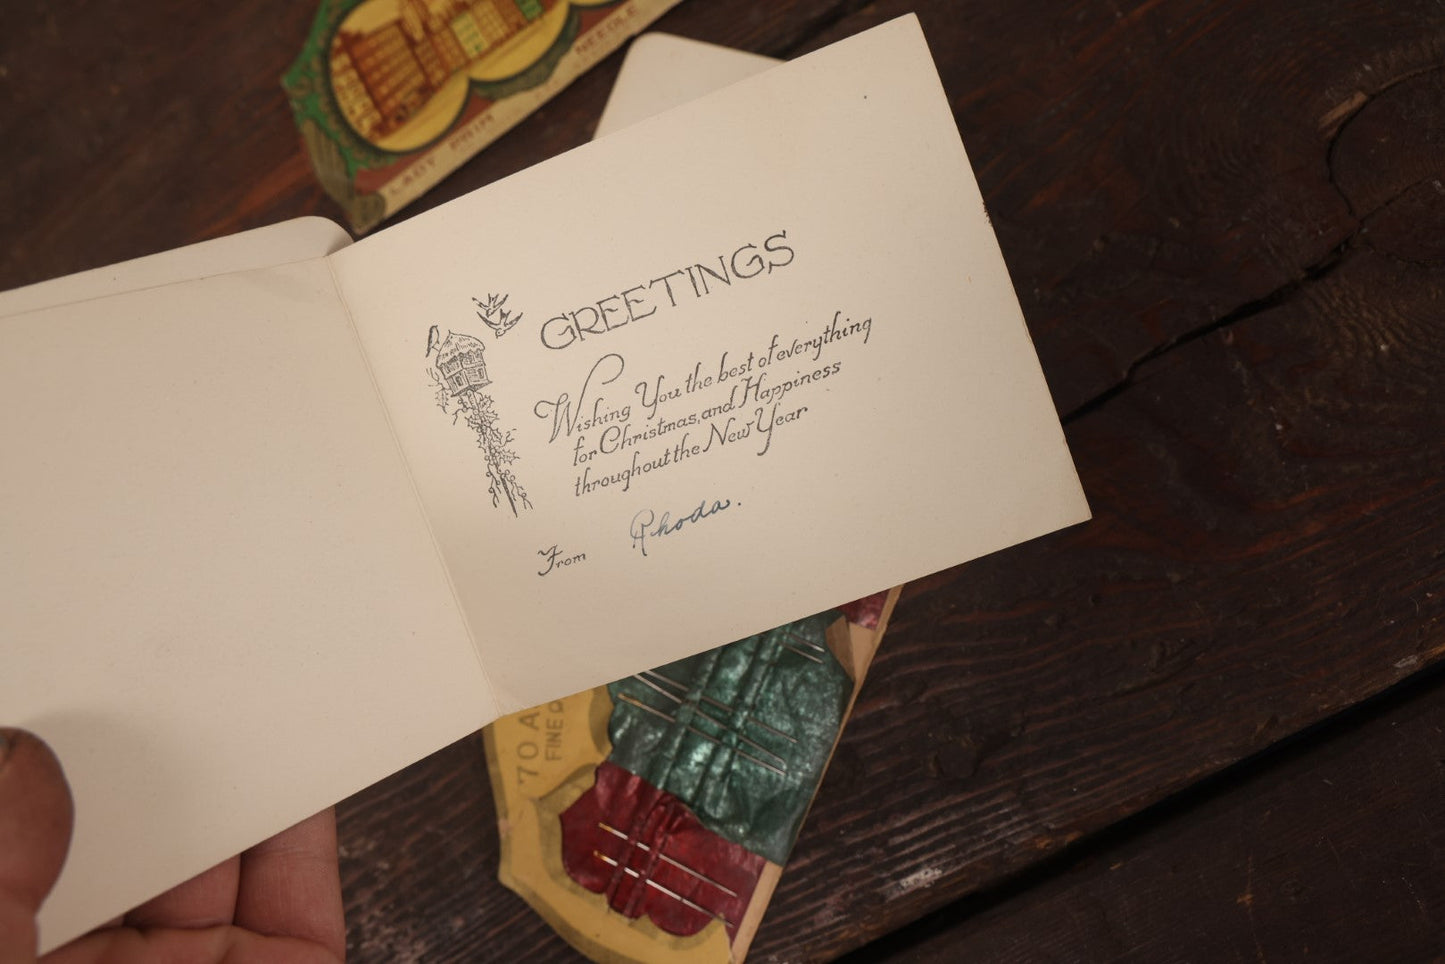 LADY PRIM
NEEDLE
GREETINGS
Wishing You the best of everything
for Christmas, and Happiness
throughout the New Year
From Rhoda.
70 A
FINE